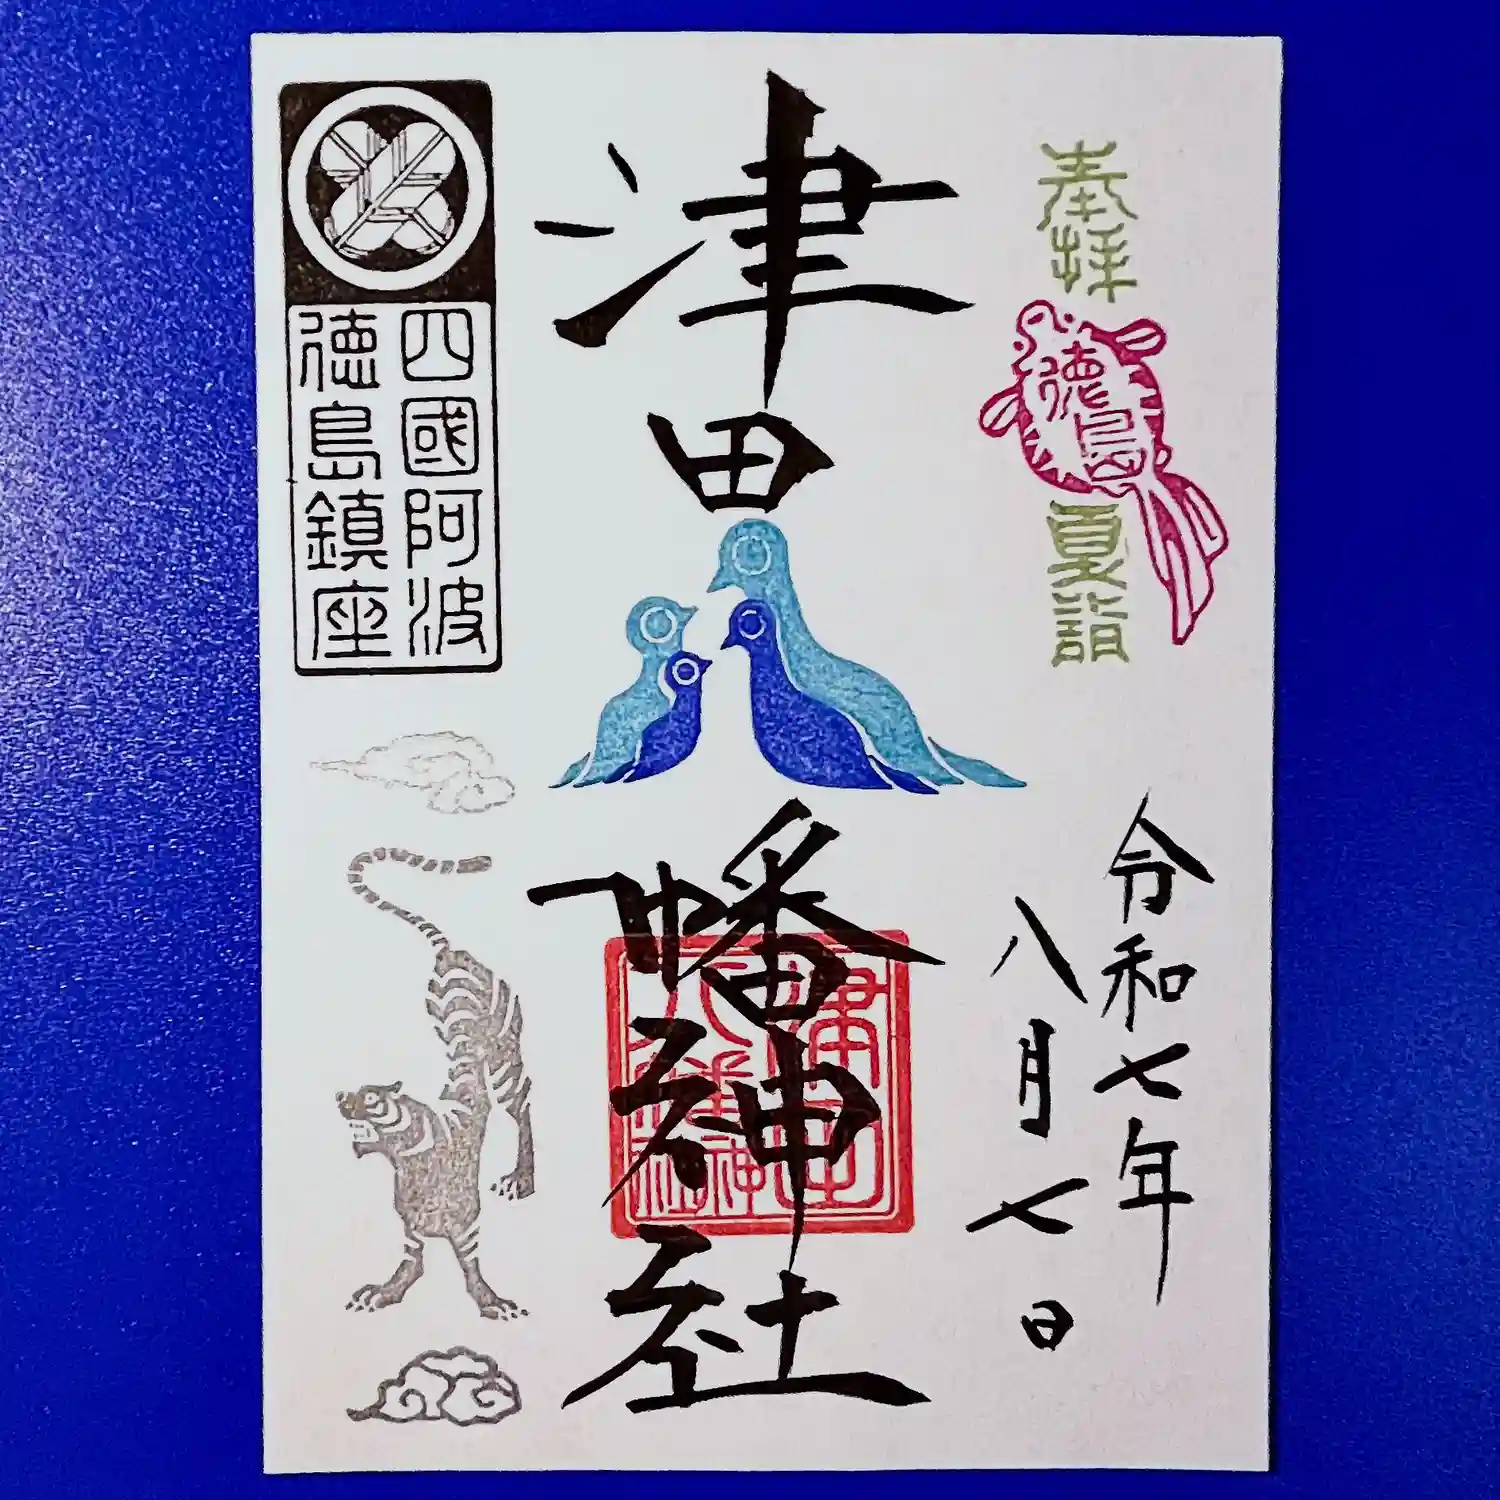 奉拝
徳島
夏詣
令和七年
八月七日
津田
幡神社
津田
八幡神社
四國阿波
徳島鎮座